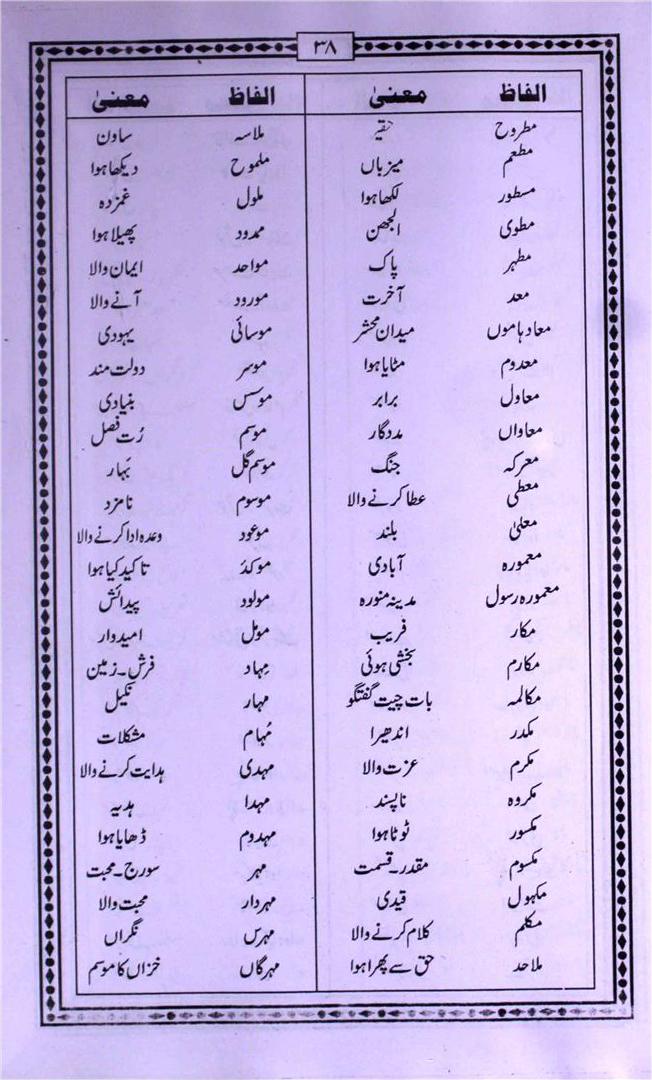 ۳۸
الفاظ معنیٰ الفاظ معنیٰ
مطروح حقیر ملاسہ ساون
مطعم میزباں ملموح دیکھا ہوا
مسطور لکھا ہوا ملول غمزدہ
مطوی الجھن ممدود پھیلا ہوا
مطہر پاک مواحد ایمان والا
معد آخرت مورود آنے والا
معاد ہاموں میدان محشر موسائی یہودی
معدوم مٹایا ہوا موسر دولت مند
معاول برابر موسس بنیادی
معاواں مددگار موسم رُت فصل
معرکہ جنگ موسم گل بَہار
معطی عطا کرنے والا موسوم نامزد
معلیٰ بلند موعود وعدہ ادا کرنے والا
معمورہ آبادی موکد تاکید کیا ہوا
معمورہ رسول مدینہ منورہ مولود پیدائش
مکار فریب مومل امیدوار
مکارم بخشی ہوئی مِہاد فرش۔زمین
مکالمہ بات چیت گفتگو مہار نکیل
مکدر اندھیرا مُہام مشکلات
مکرم عزت والا مہدی ہدایت کرنے والا
مکروہ ناپسند مہدا ہدیہ
مکسور ٹوٹا ہوا مہدوم ڈھایا ہوا
مکسوم مقدر۔قسمت مہر سورج۔محبت
مکہول قیدی مہردار محبت والا
مکلم کلام کرنے والا مہرس نگراں
ملاحد حق سے پھرا ہوا مہرگاں خزاں کا موسم